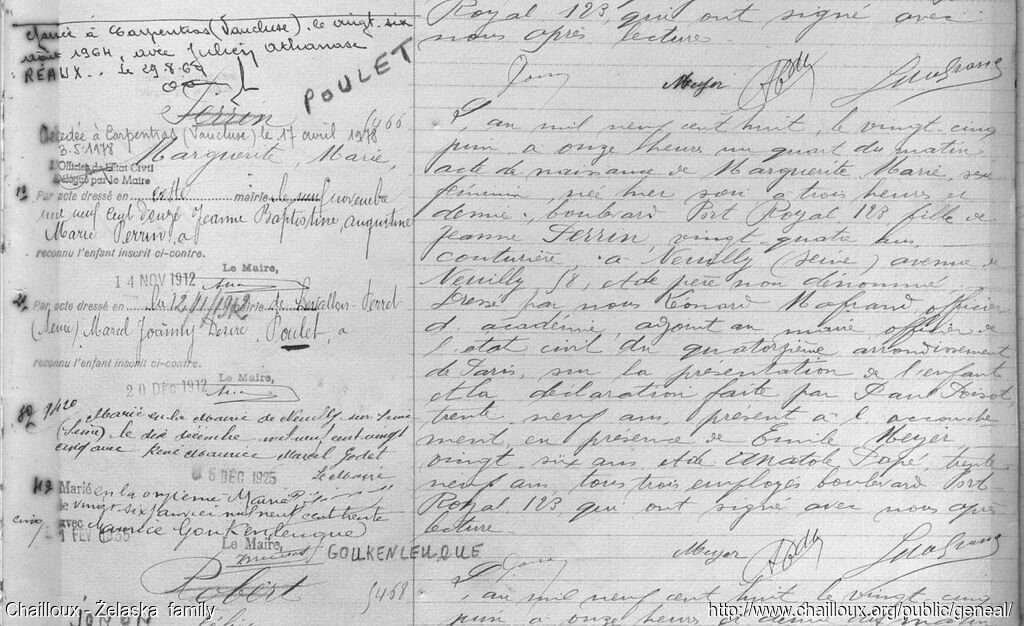 Mariée à Carpentras (Vaucluse), le vingt-six
août 1964, avec Julien Athanase
RÉAUX. Le 29.8.64
POULET
Perrin
5466
Décédée à Carpentras (Vaucluse) le 17 avril 1978
3.5.1978
Marguerite, Marie,
L'Officier de l'Etat Civil
Délégué par le Maire
Par acte dressé en cette mairie le neuf novembre
mil neuf cent douze Jeanne Baptistine, augustine
Marie Perrin, a
reconnu l'enfant inscrit ci-contre.
Le Maire,
14 NOV 1912
Par acte dressé en le 12/11/1912 mairie de Levallois-Perret
(Seine) Marcel Joanny Désiré Poulet, a
reconnu l'enfant inscrit ci-contre.
Le Maire,
20 DEC 1912
Marié en la Mairie de Neuilly sur Seine
(Seine) le dix décembre mil neuf cent vingt
cinq avec René Maurice Marcel Godet
DEC 1925
Le Maire
Marié en la onzième Mairie
le vingt six janvier mil neuf cent trente
cinq
avec Maurice Goukenleuque
1 FEV 1935
Le Maire,
GOUKENLEUQUE
Robert
5468
Royal 123, qui ont signé avec
nous après lecture
Meyer
L'an mil neuf cent huit, le vingt-cinq
juin à onze heures un quart du matin
acte de naissance de Marguerite Marie, sexe
féminin, née hier soir à trois heures et
demie, boulevard Port Royal 123 fille de
Jeanne Perrin, vingt-quatre ans,
couturière, à Neuilly (Seine) avenue de
Neuilly 58, et de père non dénommé.
Dressé par nous Léonard Mafrand, officier
d'académie, adjoint au maire officier de
l'état civil du quatorzième arrondissement
de Paris, sur la présentation de l'enfant
et la déclaration faite par Paul Poisot,
trente neuf ans, présent à l'accouche
ment, en présence de Emile Meyer
vingt-six ans, et de Anatole Papé trente
neuf ans tous trois employés boulevard Port
Royal 123, qui ont signé avec nous après
lecture
Meyer
L'an mil neuf cent huit, le vingt cinq
juin à onze heures et demie du matin
Chailloux - Żelaska family
http://www.chailloux.org/public/geneal/